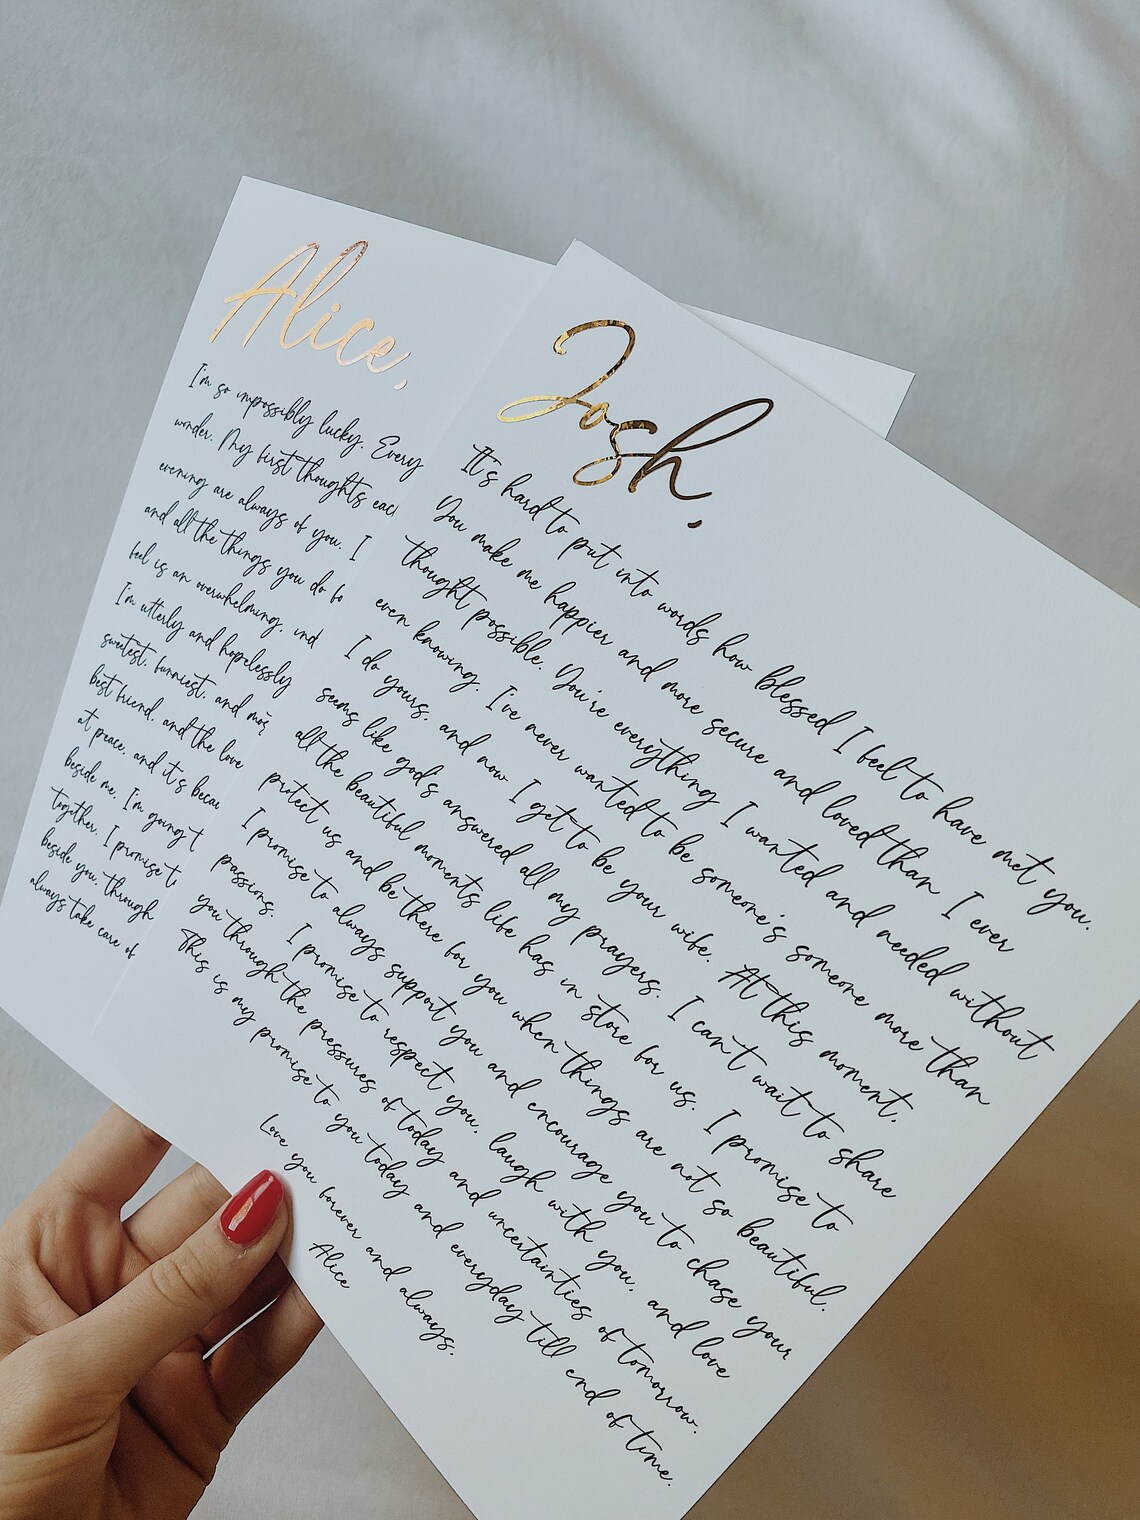 Alice,
I'm so impossibly lucky. Every
wonder. My first thoughts each
evening are always of you. I
and all the things you do fo
feel is an overwhelming, ind
I'm utterly and hopelessly
sweetest, funniest, and mos
best friend, and the love
at peace, and it's becau
beside me. I'm going t
together. I promise t
beside you, through
always take care of
Josh,
It's hard to put into words how blessed I feel to have met you.
You make me happier and more secure and loved than I ever
thought possible. You're everything I wanted and needed without
even knowing. I've never wanted to be someone's someone more than
I do yours, and now I get to be your wife. At this moment,
seems like god's answered all my prayers. I can't wait to share
all the beautiful moments life has in store for us. I promise to
protect us and be there for you when things are not so beautiful.
I promise to always support you and encourage you to chase your
passions. I promise to respect you, laugh with you, and love
you through the pressures of today and uncertainties of tomorrow.
This is my promise to you today and everyday till end of time.
Love you forever and always.
Alice